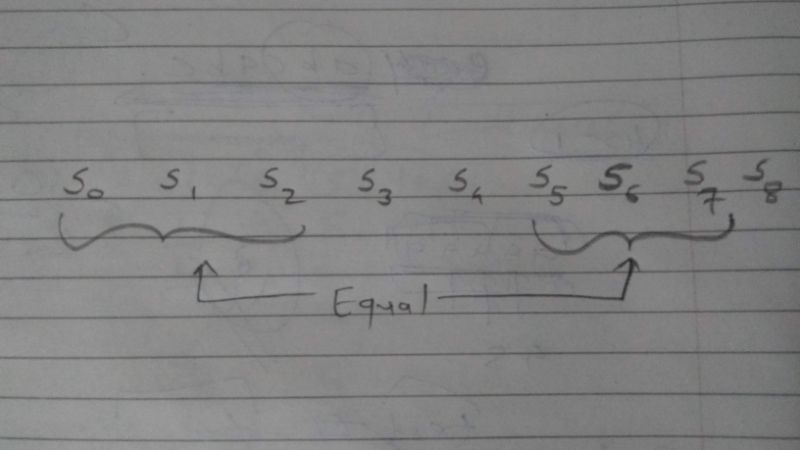 S₀ S₁ S₂ S₃ S₄ S₅ S₆ S₇ S₈
Equal